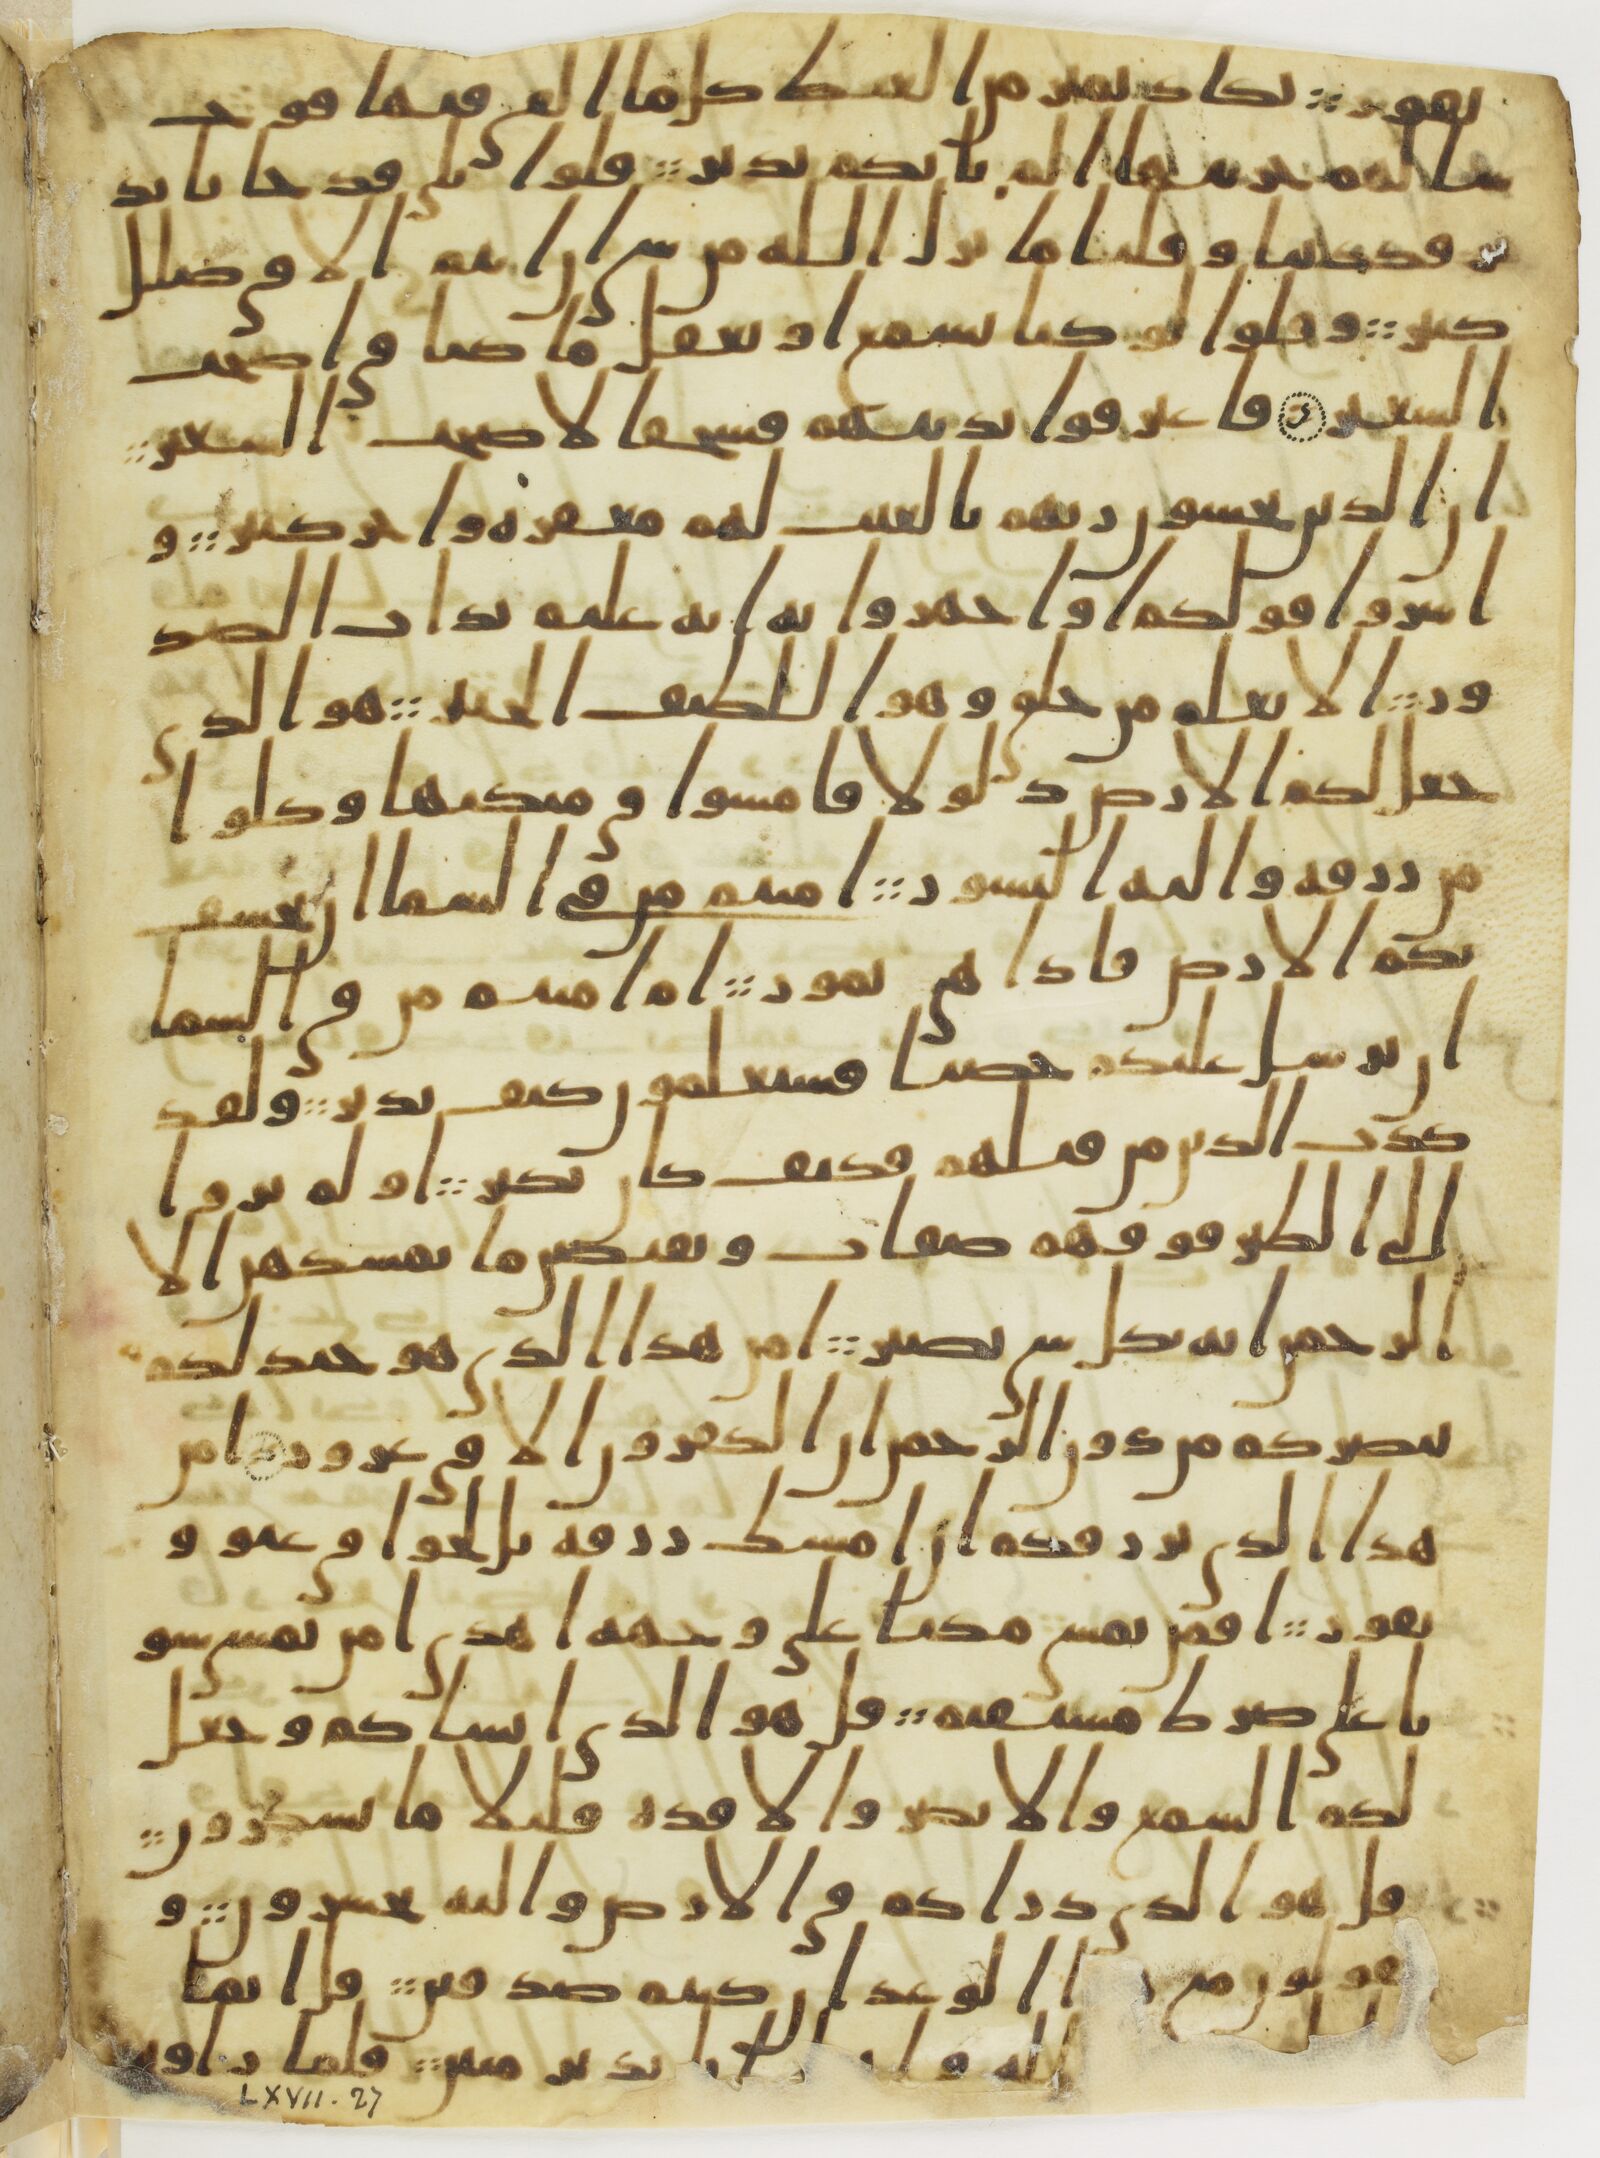 تفور ؞ تكاد تميز من الغيظ كلما القى فيها فوج
سالهم خزنتها الم ياتكم نذير ؞ قالوا بلى قد جانا نذ
ير فكذبنا وقلنا ما نزل الله من شى ان انتم الا فى ضلل
كبير ؞ وقلوا لو كنا نسمع او نعقل ما كنا فى اصحب
السعير ؞ فاعترفوا بذنبهم فسحقا لاصحب السعير ؞
ان الذين يخشون ربهم بالغيب لهم مغفرة واجر كبير ؞ و
اسروا قولكم او اجهروا به انه عليم بذات الصد
ور ؞ الا يعلم من خلق وهو اللطيف الخبير ؞ هو الذى
جعل لكم الارض ذلولا فامشوا فى منكبها وكلوا
من رزقه واليه النشور ؞ امنتم من فى السما ان يخسف
بكم الارض فاذا هى تمور ؞ ام امنتم من فى السما
ان يرسل عليكم حصبا فستعلمون كيف نذير ؞ ولقد
كذب الذين من قبلهم فكيف كان نكير ؞ او لم يروا
الى الطير فوقهم صفات ويقبضن ما يمسكهن الا
الرحمن انه بكل شى بصير ؞ امن هذا الذى هو جند لكم
ينصركم من دون الرحمن ان الكفرون الا فى غرور ؞ امن
هذا الذى يرزقكم ان امسك رزقه بل لجوا فى عتو و
نفور ؞ افمن يمشى مكبا على وجهه اهدى امن يمشى سو
يا على صرط مستقيم ؞ قل هو الذى انشاكم وجعل
لكم السمع والابصر والافدة قليلا ما تشكرون ؞
قل هو الذى ذراكم فى الارض واليه تحشرون ؞ و
يقولون متى هذا الوعد ان كنتم صدقين ؞ قل انما
الله وانما انا نذير مبين ؞ فلما راوه
LXVII. 27